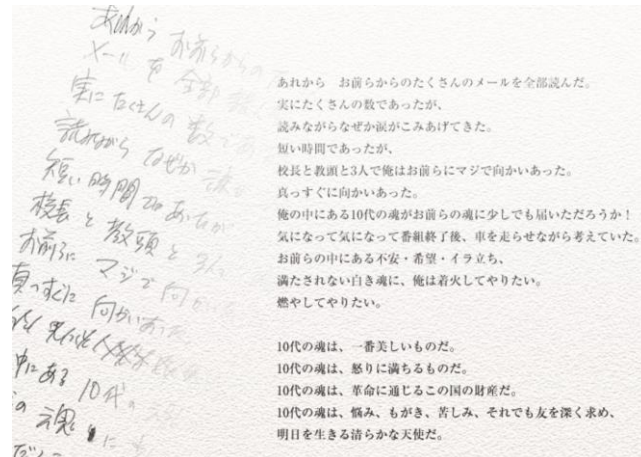 あれから お前らからの
メールを全部読ん
実にたくさんの数であ
読みながらなぜか涙が
短い時間であったが
校長と教頭と3人で
お前らにマジで向かい
真っすぐに向かいあった
中にある10代の魂
の魂に
あれから　お前らからのたくさんのメールを全部読んだ。
実にたくさんの数であったが、
読みながらなぜか涙がこみあげてきた。
短い時間であったが、
校長と教頭と3人で俺はお前らにマジで向かいあった。
真っすぐに向かいあった。
俺の中にある10代の魂がお前らの魂に少しでも届いただろうか！
気になって気になって番組終了後、車を走らせながら考えていた。
お前らの中にある不安・希望・イラ立ち、
満たされない白き魂に、俺は着火してやりたい。
燃やしてやりたい。
10代の魂は、一番美しいものだ。
10代の魂は、怒りに満ちるものだ。
10代の魂は、革命に通じるこの国の財産だ。
10代の魂は、悩み、もがき、苦しみ、それでも友を深く求め、
明日を生きる清らかな天使だ。